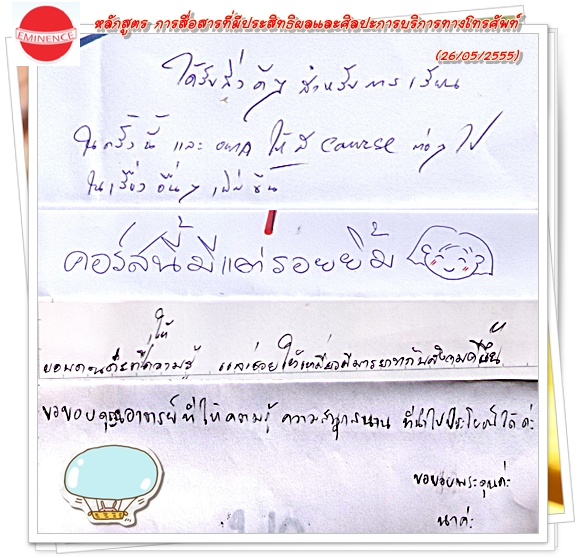 EMINENCE
หลักสูตร การสื่อสารที่มีประสิทธิผลและศิลปะการบริการทางโทรศัพท์
(26/05/2555)
ได้รับสิ่งดีๆ สำหรับการเรียน
ในครั้งนี้ และ ให้มี course ต่อๆ ไป
ในเรื่องอื่นๆ เพิ่มขึ้น
คอร์สนี้มีแต่รอยยิ้ม
ให้
ความรู้
ขอขอบคุณอาจารย์ ที่ให้ความรู้ ความสนุกสนาน ที่นำไปใช้ประโยชน์ได้ค่ะ
ขอขอบพระคุณค่ะ